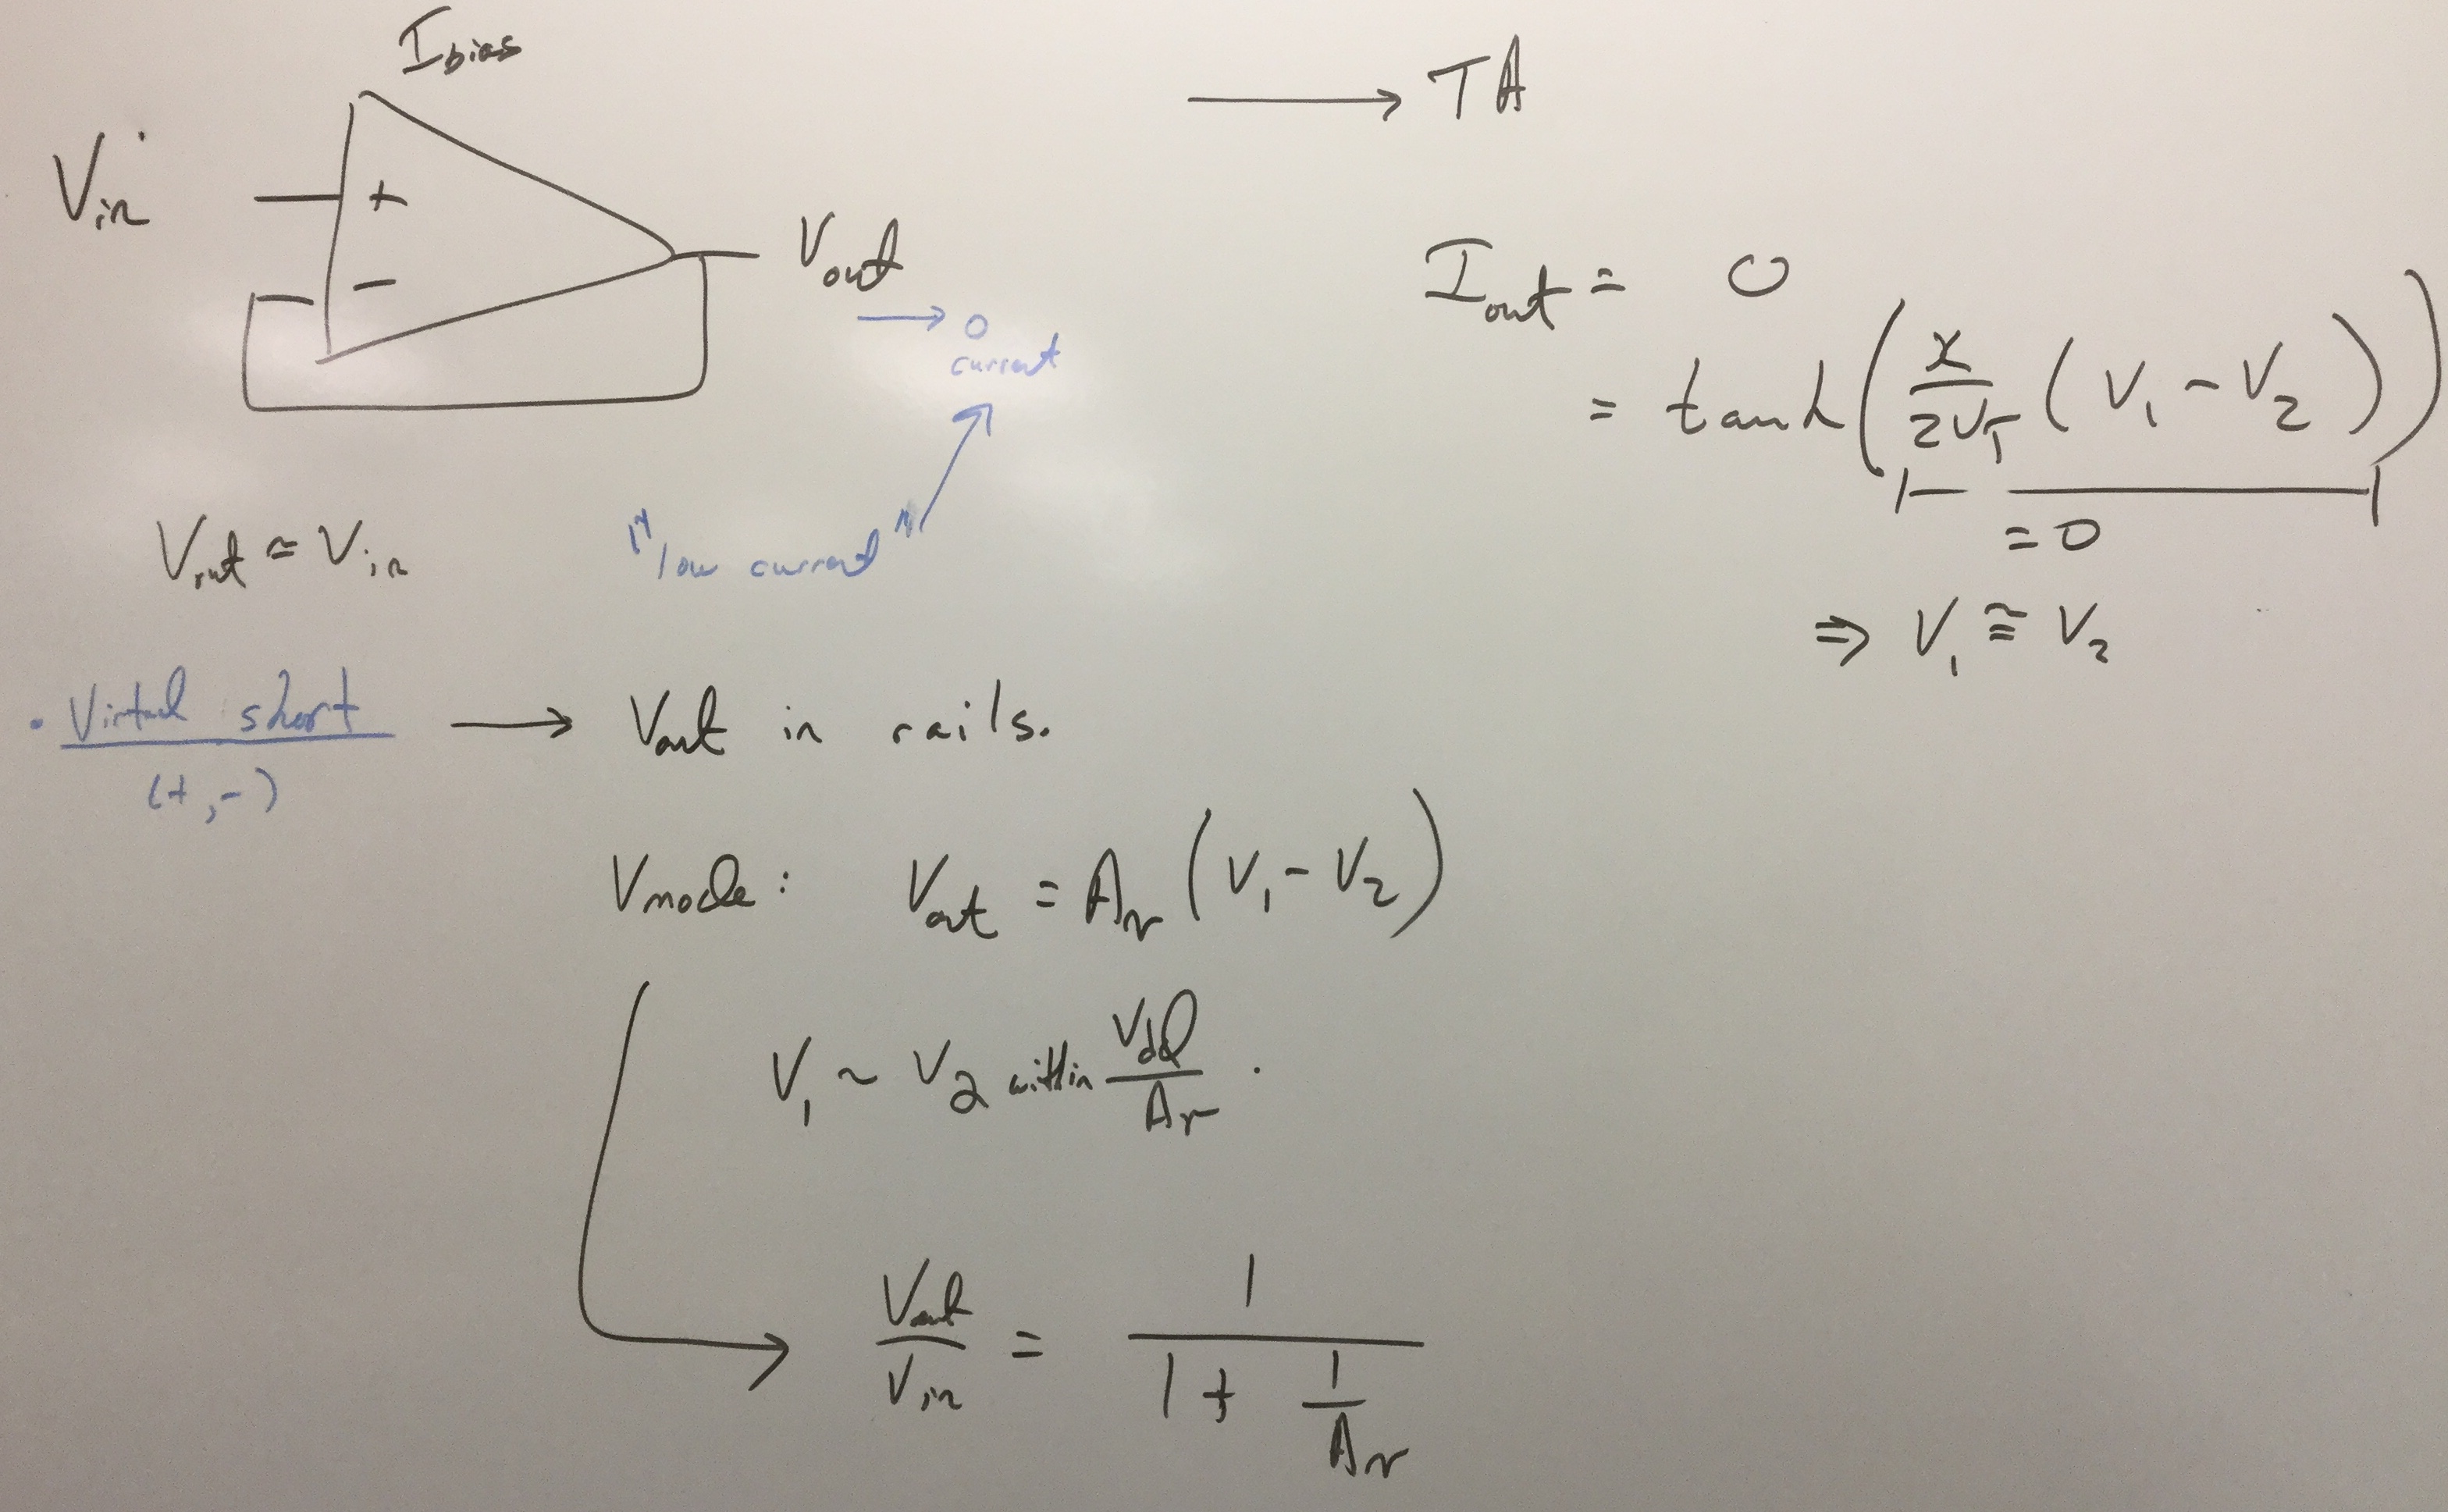 I_bias
V_in
+
−
V_out
→ 0
current
"low current"
V_out ≃ V_in
→ TA
I_out = 0
= tanh(κ/2U_T (V_1 − V_2))
= 0
⇒ V_1 ≅ V_2
· Virtual short → V_out in rails.
(+,−)
Vmode: V_out = A_v (V_1 − V_2)
V_1 ~ V_2 within Vdd/A_v .
V_out/V_in = 1/(1 + 1/A_v)